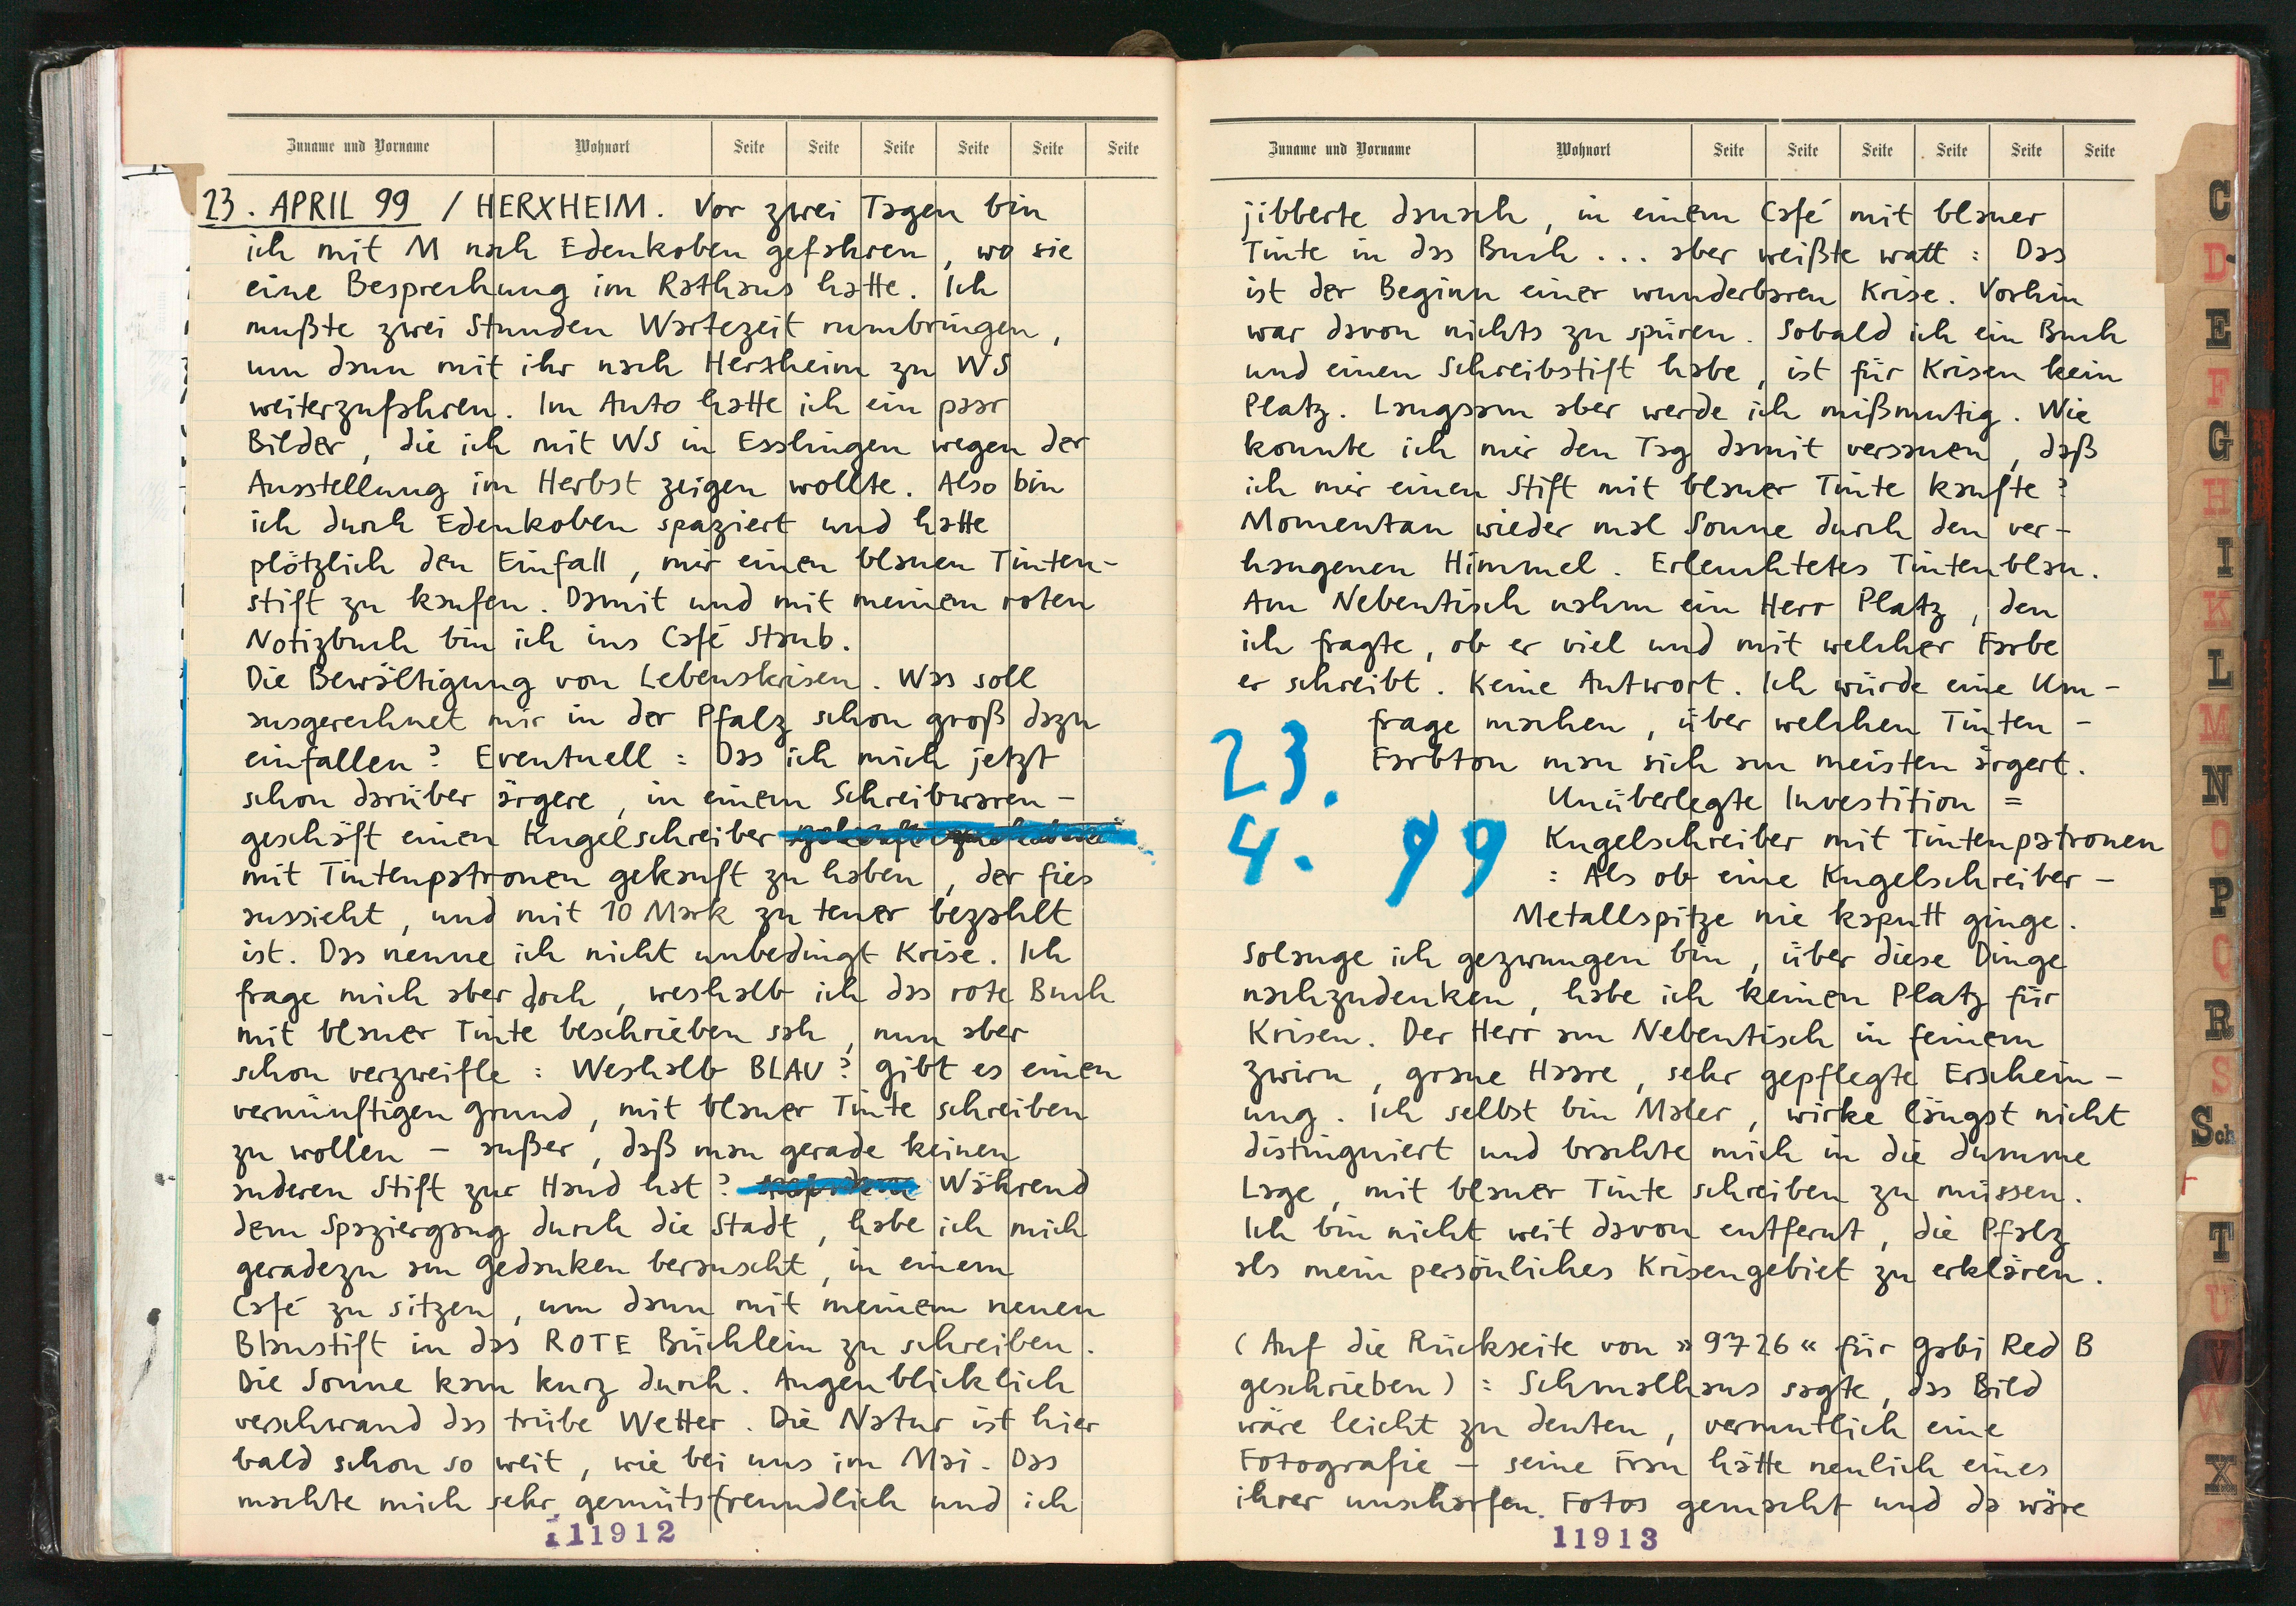 Zuname und Vorname Wohnort Seite Seite Seite Seite Seite Seite
23. APRIL 99 / HERXHEIM. Vor zwei Tagen bin
ich mit M nach Edenkoben gefahren, wo sie
eine Besprechung im Rathaus hatte. Ich
mußte zwei Stunden Wartezeit rumbringen,
um dann mit ihr nach Herxheim zu WS
weiterzufahren. Im Auto hatte ich ein paar
Bilder, die ich mit WS in Esslingen wegen der
Ausstellung im Herbst zeigen wollte. Also bin
ich durch Edenkoben spaziert und hatte
plötzlich den Einfall, mir einen blauen Tinten-
stift zu kaufen. Damit und mit meinem roten
Notizbuch bin ich ins Café Staub.
Die Bewältigung von Lebenskrisen. Was soll
ausgerechnet mir in der Pfalz schon groß dazu
einfallen? Eventuell: Das ich mich jetzt
schon darüber ärgere, in einem Schreibwaren-
geschäft einen Kugelschreiber
mit Tintenpatronen gekauft zu haben, der fies
aussieht, und mit 10 Mark zu teuer bezahlt
ist. Das nenne ich nicht unbedingt Krise. Ich
frage mich aber doch, weshalb ich das rote Buch
mit blauer Tinte beschrieben sah, nun aber
schon verzweifle: Weshalb BLAU? gibt es einen
vernünftigen Grund, mit blauer Tinte schreiben
zu wollen – außer, daß man gerade keinen
anderen Stift zur Hand hat? Während
dem Spaziergang durch die Stadt, habe ich mich
geradezu am Gedanken berauscht, in einem
Café zu sitzen, um dann mit meinem neuen
Blaustift in das ROTE Büchlein zu schreiben.
Die Sonne kam kurz durch. Augenblicklich
verschwand das trübe Wetter. Die Natur ist hier
bald schon so weit, wie bei uns im Mai. Das
machte mich sehr gemütsfreundlich und ich
11912
Zuname und Vorname Wohnort Seite Seite Seite Seite Seite Seite
jibberte danach, in einem Café mit blauer
Tinte in das Buch ... aber weißte watt: Das
ist der Beginn einer wunderbaren Krise. Vorhin
war davon nichts zu spüren. Sobald ich ein Buch
und einen Schreibstift habe, ist für Krisen kein
Platz. Langsam aber werde ich mißmutig. Wie
konnte ich mir den Tag damit versauen, daß
ich mir einen Stift mit blauer Tinte kaufte?
Momentan wieder mal Sonne durch den ver-
hangenen Himmel. Erleuchtetes Tintenblau.
Am Nebentisch nahm ein Herr Platz, den
ich fragte, ob er viel und mit welcher Farbe
er schreibt. Keine Antwort. Ich würde eine Um-
frage machen, über welchen Tinten-
Farbton man sich am meisten ärgert.
23.
4. 99
Unüberlegte Investition =
Kugelschreiber mit Tintenpatronen
: Als ob eine Kugelschreiber-
Metallspitze nie kaputt ginge.
Solange ich gezwungen bin, über diese Dinge
nachzudenken, habe ich keinen Platz für
Krisen. Der Herr am Nebentisch in feinem
Zwirn, graue Haare, sehr gepflegte Erschein-
ung. Ich selbst bin Maler, wirke längst nicht
distinguiert und brachte mich in die dumme
Lage, mit blauer Tinte schreiben zu müssen.
Ich bin nicht weit davon entfernt, die Pfalz
als mein persönliches Krisengebiet zu erklären.
(Auf die Rückseite von »9726« für Gabi Red B
geschrieben): Schmalhaus sagte, das Bild
wäre leicht zu deuten, vermutlich eine
Fotografie – seine Frau hätte neulich eines
ihrer unscharfen Fotos gemacht und da wäre
11913
C
D
E
F
G
H
I
K
L
M
N
O
P
Q
R
S
Sch
T
U
V
W
X